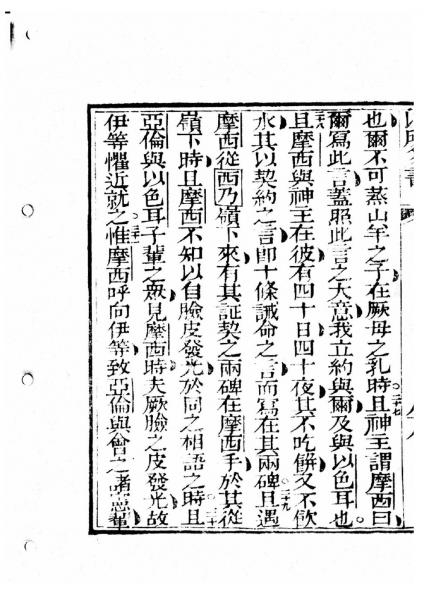 也爾不可蒸山羊之子在厥母之乳時○二十七且神主謂摩西曰
爾寫此言蓋照此言之大意我立約與爾及與以色耳也○
二十八且摩西與神主在彼有四十日四十夜其不吃餅又不飲
水其以契約之言卽十條誡命之言而寫在其兩碑○二十九且遇
摩西從西乃嶺下來有其証契之兩碑在摩西手於其從
嶺下時且摩西不知以自臉皮發光於同之相語之時○三十且
亞倫與以色耳子輩之衆見摩西時夫厥臉之皮發光故
伊等懼近就之○三十一惟摩西呼向伊等致亞倫與會之諸憲輩